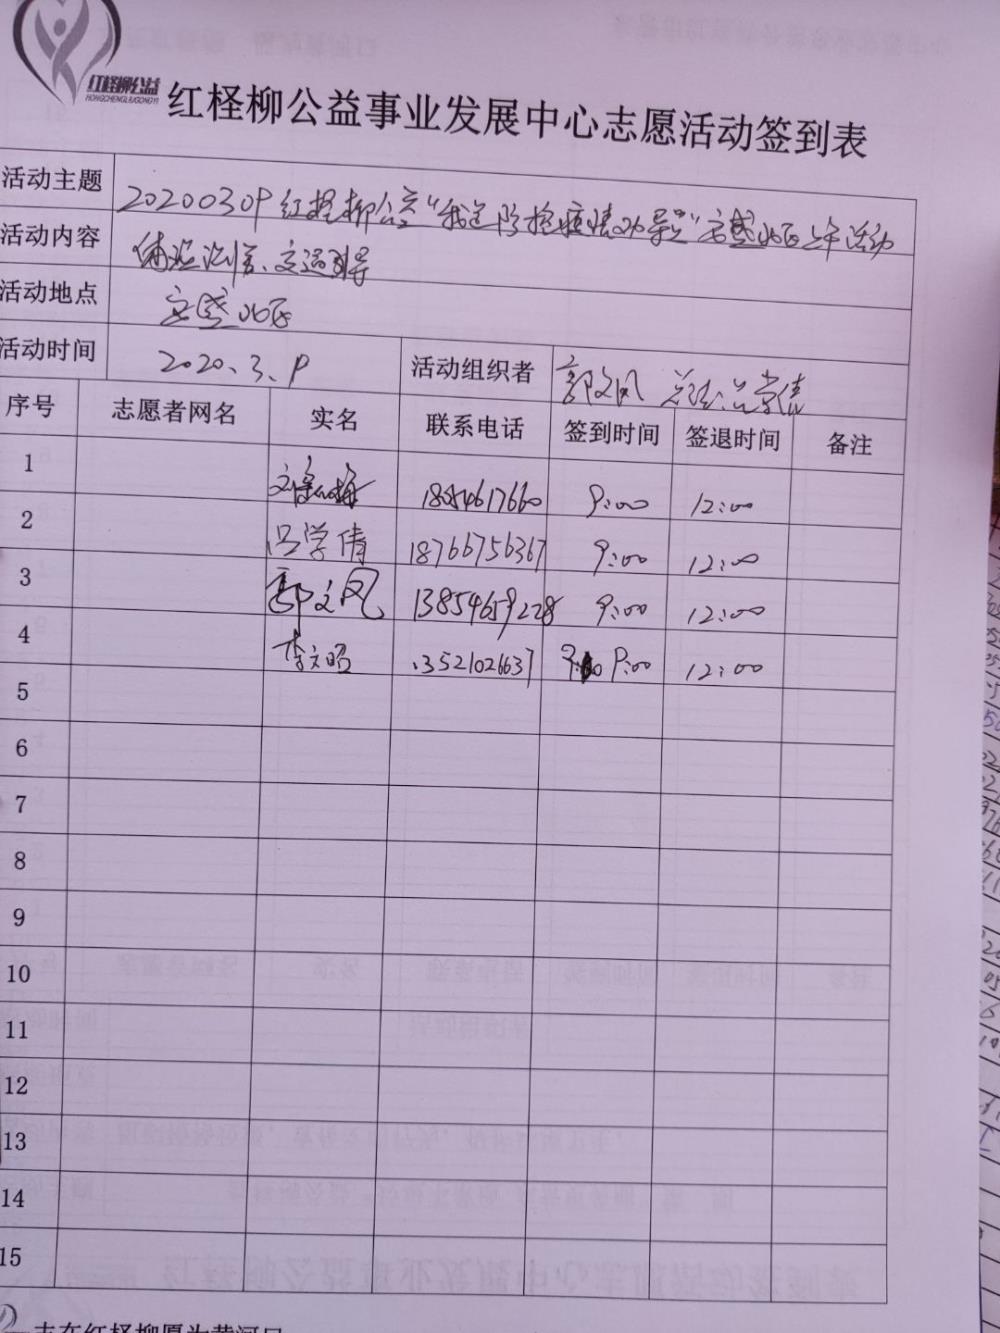 红柽柳公益
HONGCHENGLIUGONGYI
红柽柳公益事业发展中心志愿活动签到表
活动主题 20200309 红柽柳公益"我是防控疫情劝导员"安盛北区上午活动
活动内容 体温测量、交通引导
活动地点 安盛北区
活动时间 2020.3.9 活动组织者 郭文凤 吕学倩
序号 志愿者网名 实名 联系电话 签到时间 签退时间 备注
1 18054617660 9:00 12:00
2 吕学倩 18766756367 9:00 12:00
3 郭文凤 13854659228 9:00 12:00
4 李文昭 13521026637 9:00 12:00
5
6
7
8
9
10
11
12
13
14
15
志在红柽柳愿为黄河口